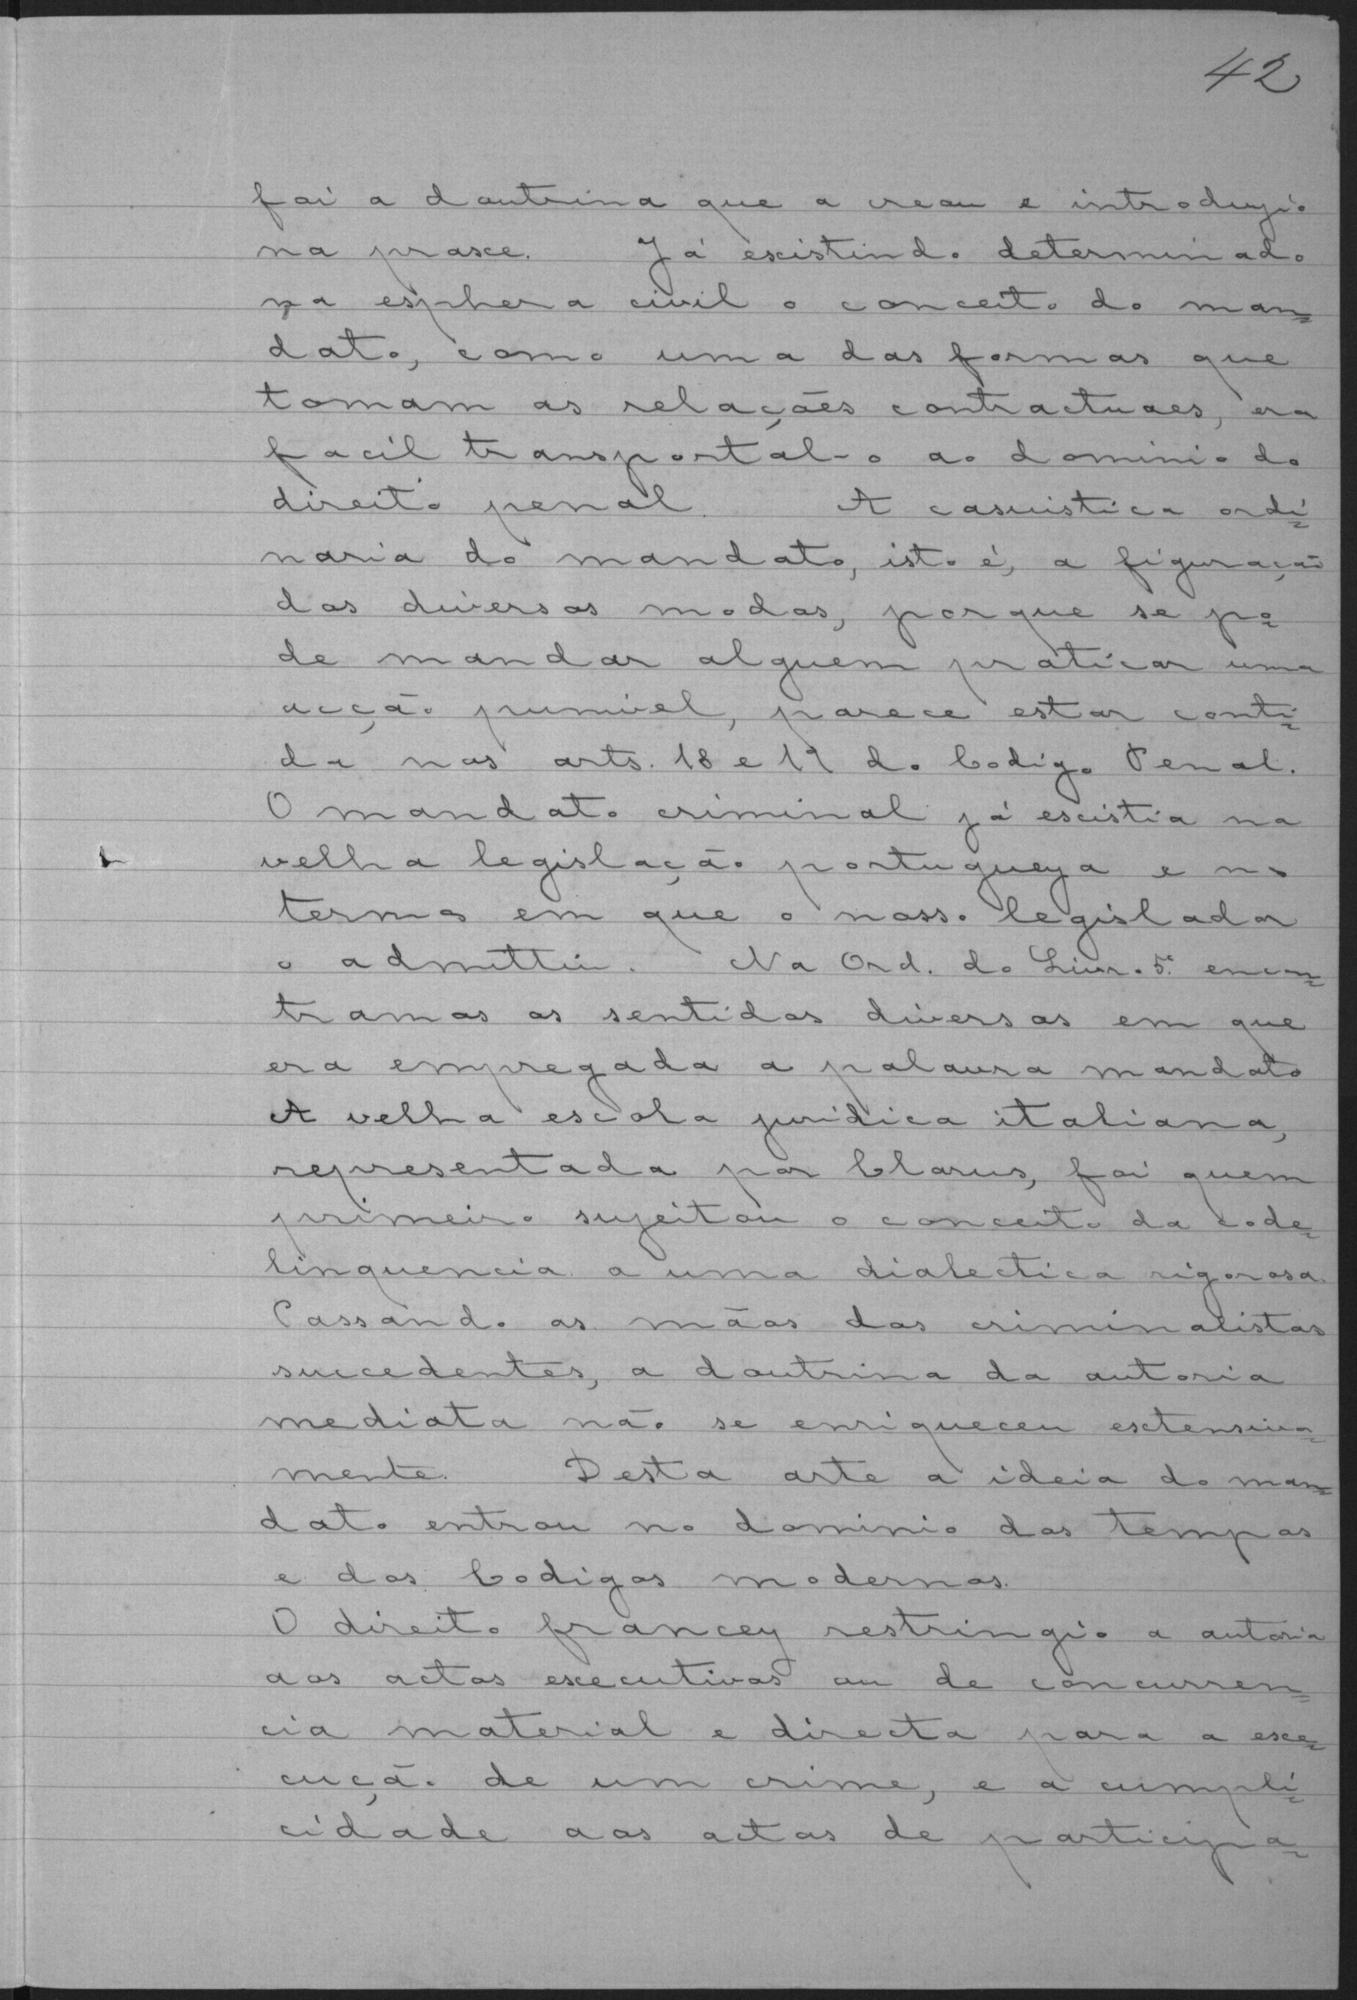 42
foi a doutrina que a creou e introduzio
na praxe. Já existindo determinado
na esphera civil o conceito do man=
dato, como uma das formas que
tomam as relações contractuaes, era
facil transportal-o ao dominio do
direito penal. A casuistica ordi=
naria do mandato, isto é, a figuração
dos diversos modos, porque se po=
de mandar alguem praticar uma
acção punivel, parece estar conti=
da nos arts. 18 e 19 do Codigo Penal.
O mandato criminal já existia na
velha legislação portugueza e nos
termos em que o nosso legislador
o admittiu. Na Ord. do Livr. 5º encon=
tramos os sentidos diversos em que
era empregada a palavra mandato
A velha escola juridica italiana,
representada por Clarus, foi quem
primeiro sujeitou o conceito da code=
linquencia a uma dialectica rigorosa.
Passando as mãos dos criminalistas
succedentes, a doutrina da autoria
mediata não se enriqueceu extensiva=
mente. Desta arte a ideia do man=
dato entrou no dominio dos tempos
e dos Codigos modernos.
O direito francez restringio a autoria
aos actos executivos ou de concurren=
cia material e directa para a exe=
cução de um crime, e a cumpli=
cidade aos actos de participa=